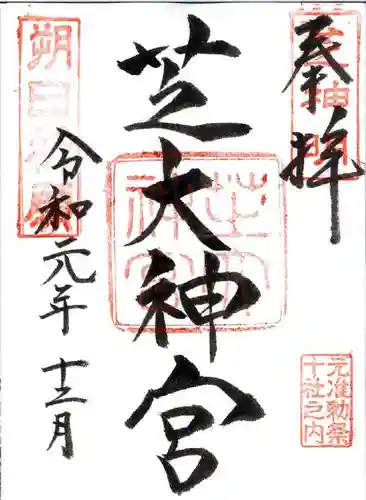 芝神明
奉拝
元准勅祭
十社之内
芝大神宮
朔日
令和元年十二月